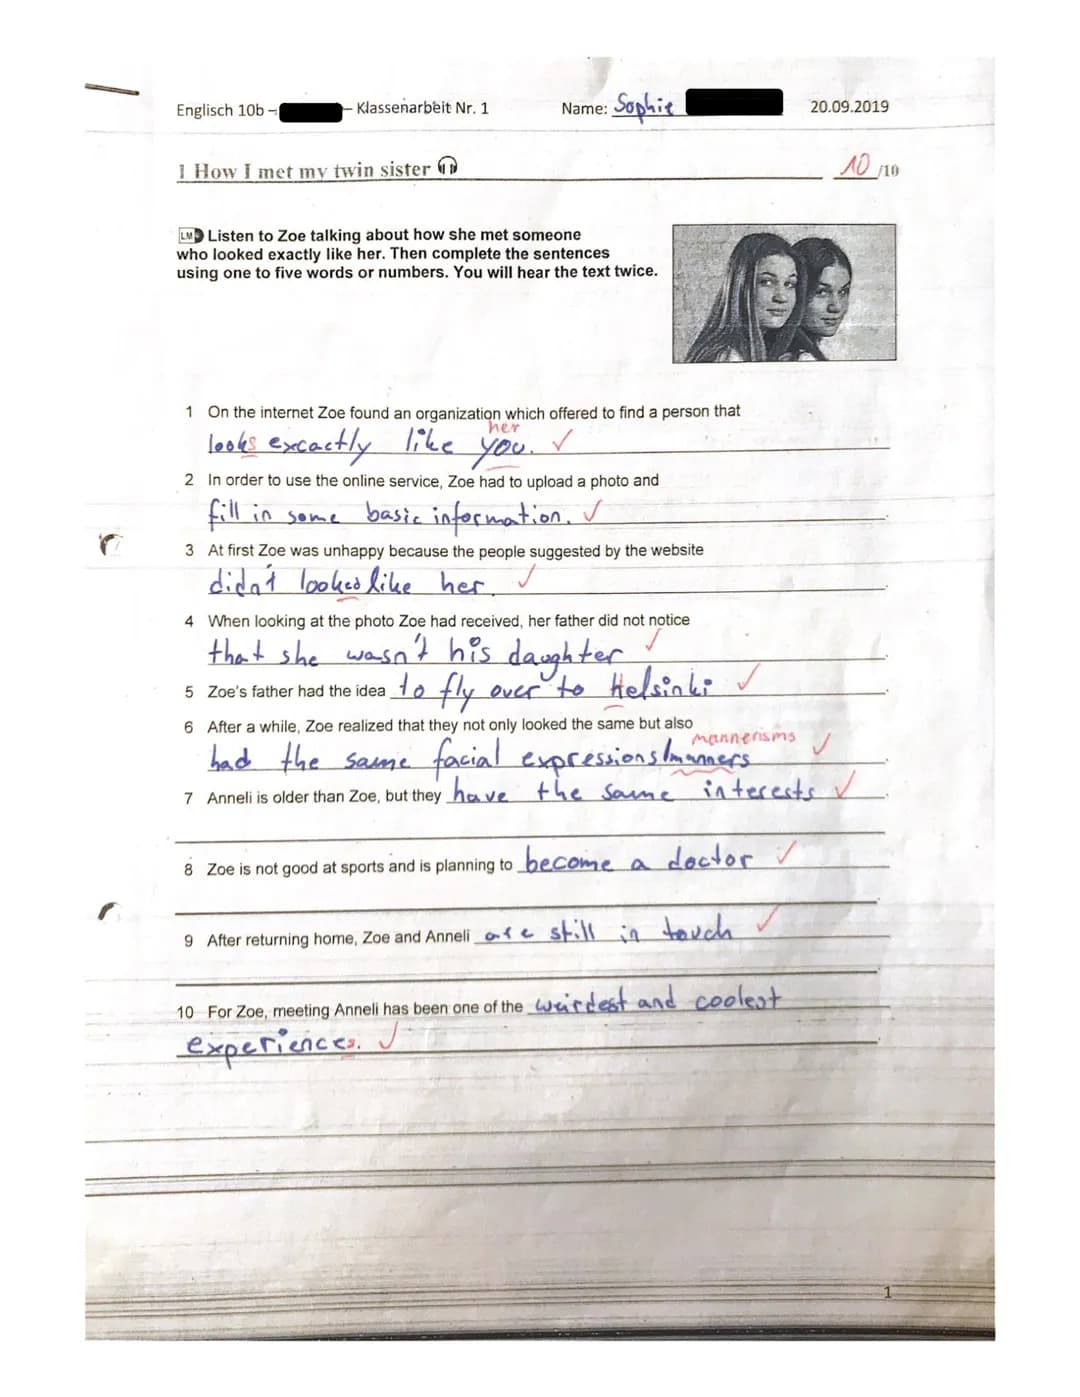 Englisch 10b – – Klassenarbeit Nr. 1 Name: Sophie 20.09.2019
1 How I met my twin sister 10 /10
LM Listen to Zoe talking about how she met someone
who looked exactly like her. Then complete the sentences
using one to five words or numbers. You will hear the text twice.
1 On the internet Zoe found an organization which offered to find a person that
her
looks excactly like you. ✓
2 In order to use the online service, Zoe had to upload a photo and
fill in some basic information. ✓
3 At first Zoe was unhappy because the people suggested by the website
didn't looked like her. ✓
4 When looking at the photo Zoe had received, her father did not notice
that she wasn't his daughter ✓
5 Zoe's father had the idea to fly over to Helsinki ✓
6 After a while, Zoe realized that they not only looked the same but also
mannerisms ✓
had the same facial expressions/manners
7 Anneli is older than Zoe, but they have the same interests ✓
8 Zoe is not good at sports and is planning to become a doctor ✓
9 After returning home, Zoe and Anneli are still in touch ✓
10 For Zoe, meeting Anneli has been one of the weirdest and coolest
experiences. ✓
1